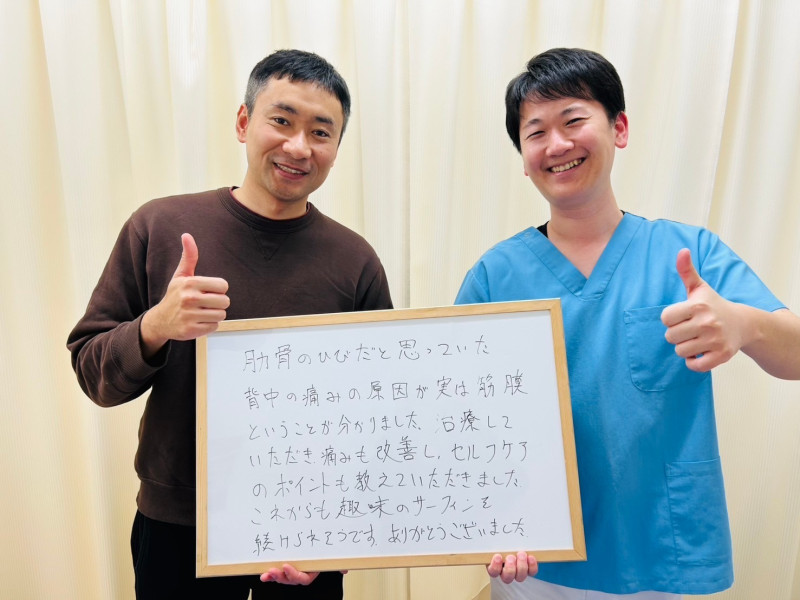 肋骨のひびだと思っていた
背中の痛みの原因が実は筋膜
ということが分かりました。治療して
いただき痛みも改善し、セルフケア
のポイントも教えていただきました
これからも趣味のサーフィンを
続けられそうです。ありがとうございました。